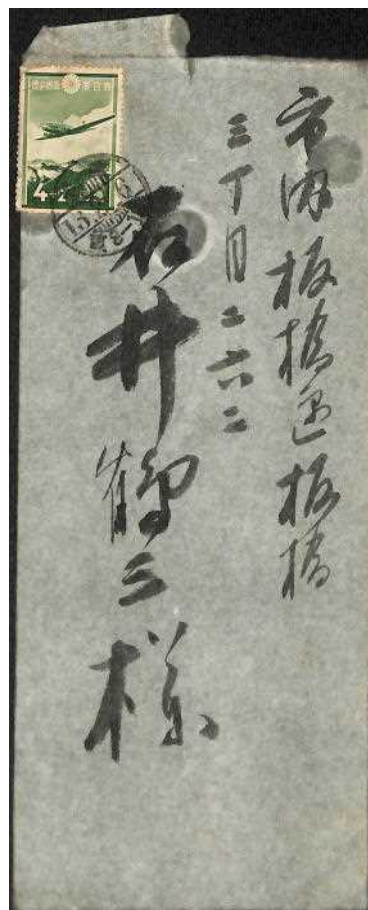 市内板橋區板橋
三丁目二六二
石井鶴三様